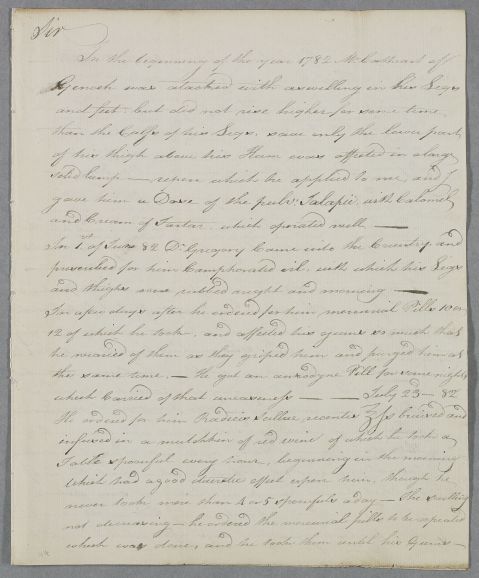 Sir
In the beginning of the year 1782 Mr Cathcart off
Genoch was atacked with a swelling in his Legs
and feet but did not rise higher for some time
than the Calfs of his Legs, save only the lower part
of his thigh above his Ham was affected in a large
solid lump — upon which he applied to me, and I
gave him a Dose of the pulv: Jalapii, with Calomel
and Cream of Tartar, which operated well —
In 1st of June 82 Dr Gregory Came into the Country and
prescribed for him Camphorated oil, with which his Legs
and thighs were rubbed night and morning —
In a few days after he ordered for him mercurial Pills 10 or
12 of which he took, and affected his gums so much that
he wearied of them as they griped him and purged him at
the same time. — He got an annodyne Pill for some nights
which Carried of that uneaseness — — July 23d — 82
He ordered for him Radicis Scillae recentis ℥fs bruised and
infused in a mutchkin of red wine of which he took a
Table spoonful every hour, beginning in the morning
which had a good diuretic effect upon him, though he
never took more than 4 or 5 spoonfuls a day — The swelling
not decreasing — he ordered the mercurial pills to be repeated
which was done, and he took them until his Gums —